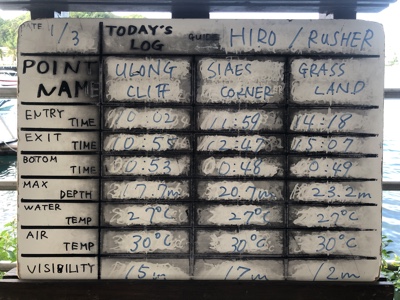 DATE 1/3 TODAY'S LOG GUIDE HIRO / RUSHER
POINT NAME ULONG CLIFF SIAES CORNER GRASS LAND
ENTRY TIME 10:02 11:59 14:18
EXIT TIME 10:55 12:47 15:07
BOTOM TIME 0:53 0:48 0:49
MAX DEPTH 17.7m 20.7m 23.2m
WATER TEMP 27°C 27°C 27°C
AIR TEMP 30°C 30°C 30°C
VISIBILITY 15m 17m 12m